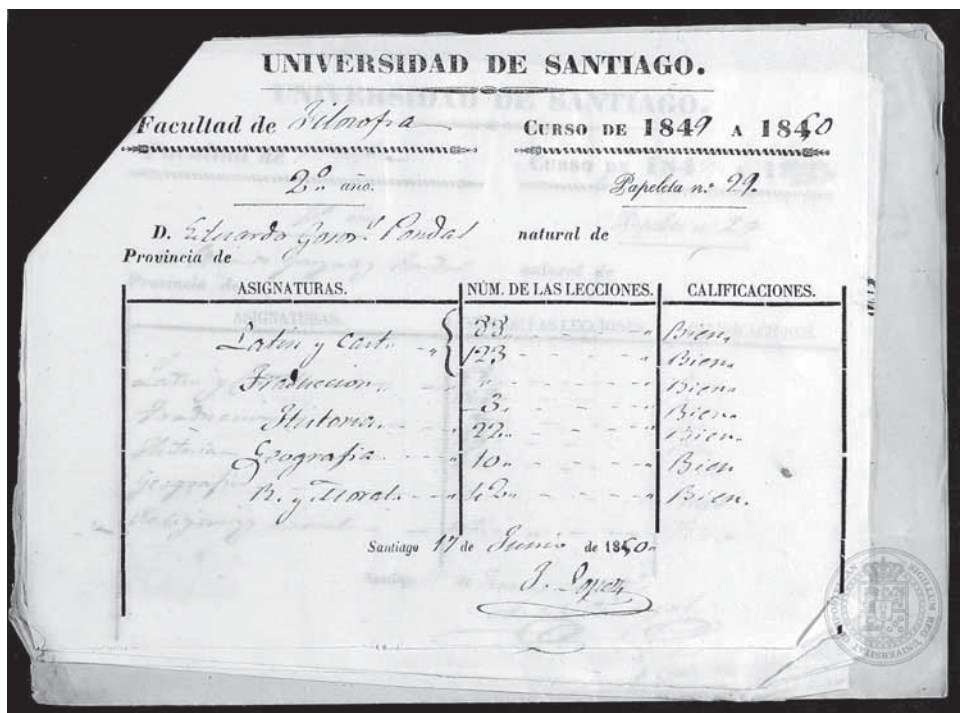 UNIVERSIDAD DE SANTIAGO.
Facultad de Filosofia CURSO DE 1849 A 1850
2.º año. Papeleta n.º 29.
D. Eduardo Gonz.l Pondal natural de
Provincia de
ASIGNATURAS. NÚM. DE LAS LECCIONES. CALIFICACIONES.
Latin y Cast.º 33 Bien
123 Bien
Traduccion " Bien
Historia 3 Bien
22 Bien
Geografia 10 Bien
R. y Moral 42 Bien.
Santiago 17 de Junio de 1850
J. Lopez